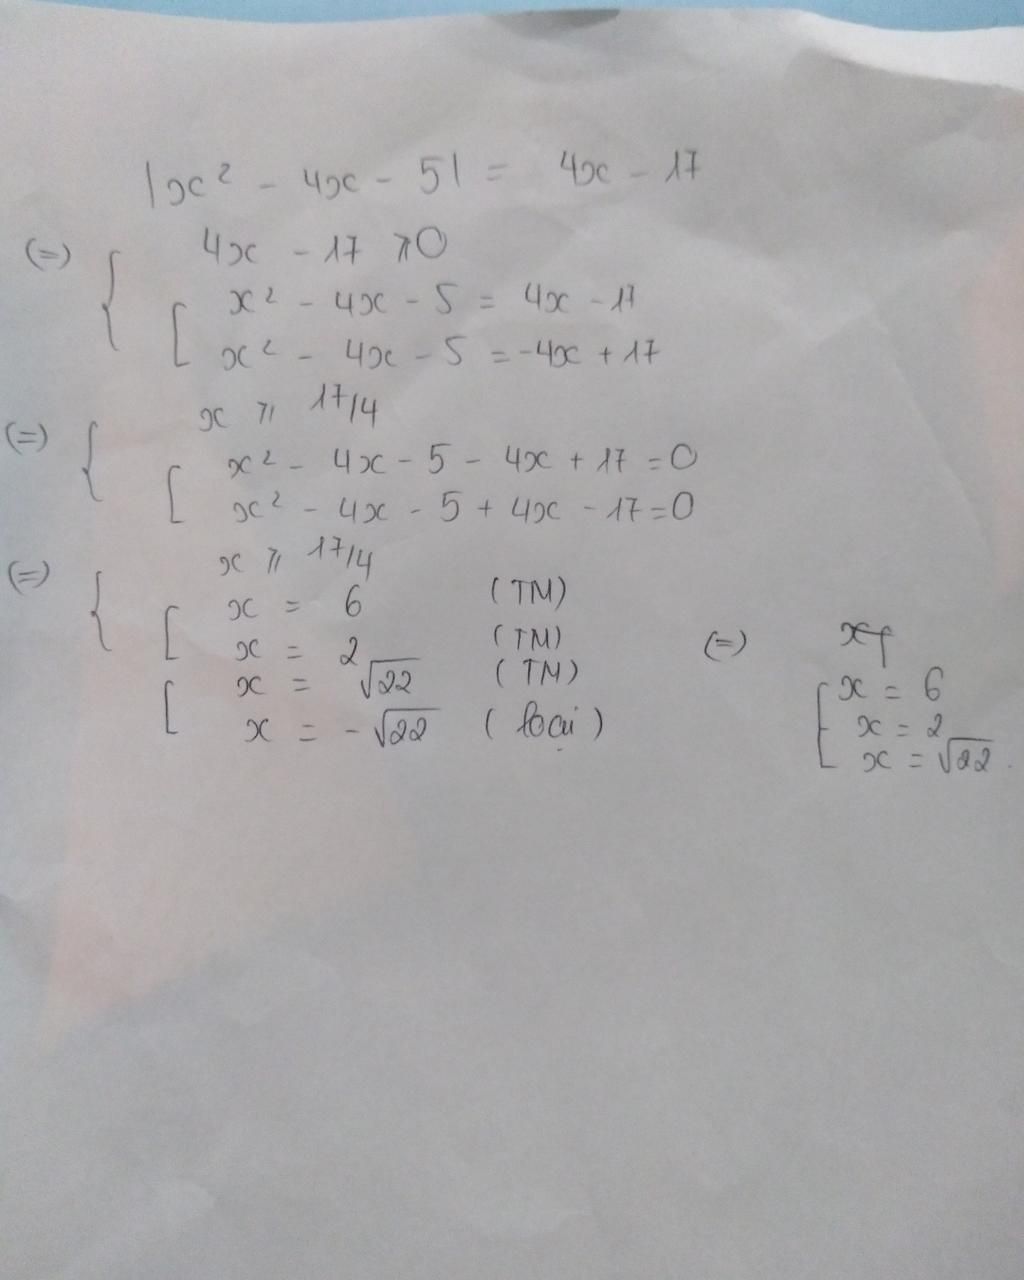 |x² - 4x - 5| = 4x - 17
(=) { 4x - 17 ⩾ 0
[ x² - 4x - 5 = 4x - 17
x² - 4x - 5 = -4x + 17
(=) { x ⩾ 17/4
[ x² - 4x - 5 - 4x + 17 = 0
x² - 4x - 5 + 4x - 17 = 0
(=) { x ⩾ 17/4
[ x = 6 (TM)
x = 2 (TM)
[ x = √22 (TM)
x = -√22 (loại)
(=)
[ x = 6
x = 2
x = √22.